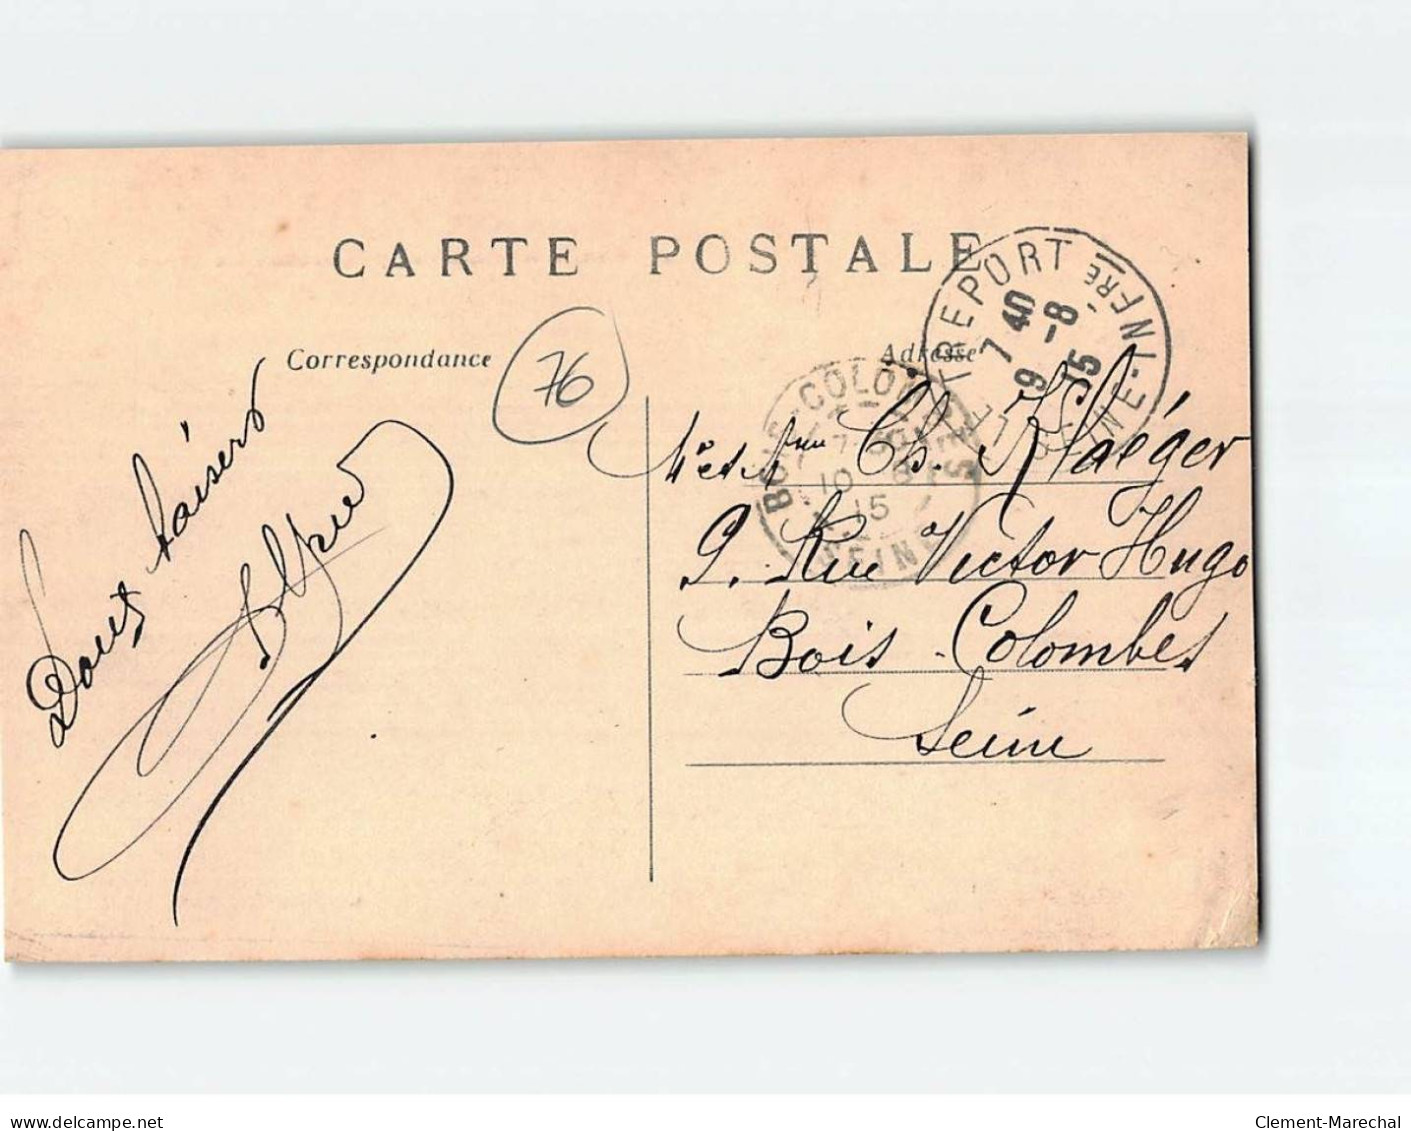 CARTE POSTALE
Correspondance
76
Adresse
LE TREPORT
SEINE-INFRE
7 40
9 -8
15
BOIS-COLOMBES
7
10 8
15
SEINE
Ch. Klaéger
9. Rue Victor Hugo
Bois-Colombes
Seine
Doux baisers
delcampe.net
Clement-Marechal